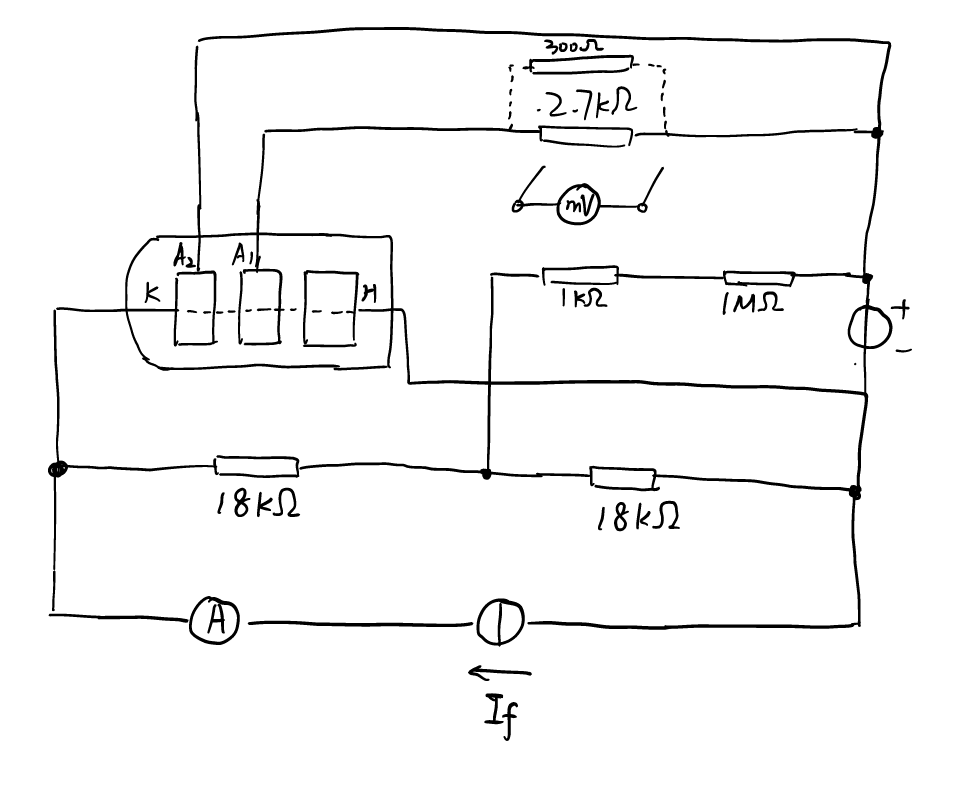 300Ω
.2.7kΩ
A₂ A₁
mV
K H
1kΩ 1MΩ
+
-
18kΩ
18kΩ
A
If